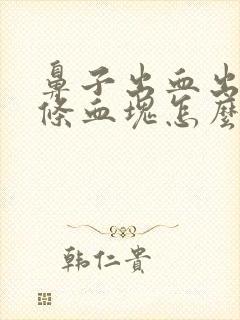 鼻子出血出
條血塊怎麼
韩仁貴